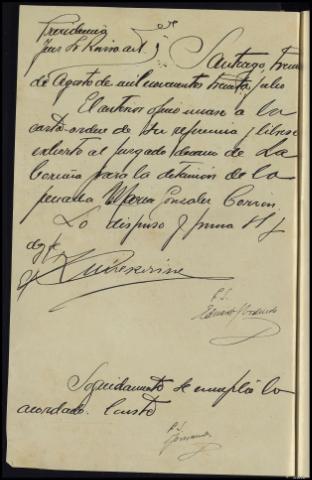 Providencia
Juez Sr.
Santiago, treinta
de Agosto de mil novecientos treinta
El anterior oficio unase a la
carta-orden de su referencia y librese
exhorto al Juzgado decano de La
Coruña para la detención de la
penada Maria Gonzalez
Lo dispuso y firma S S
doy fe
P. S.
Seguidamente se cumplió lo
acordado. Consta
P. S.